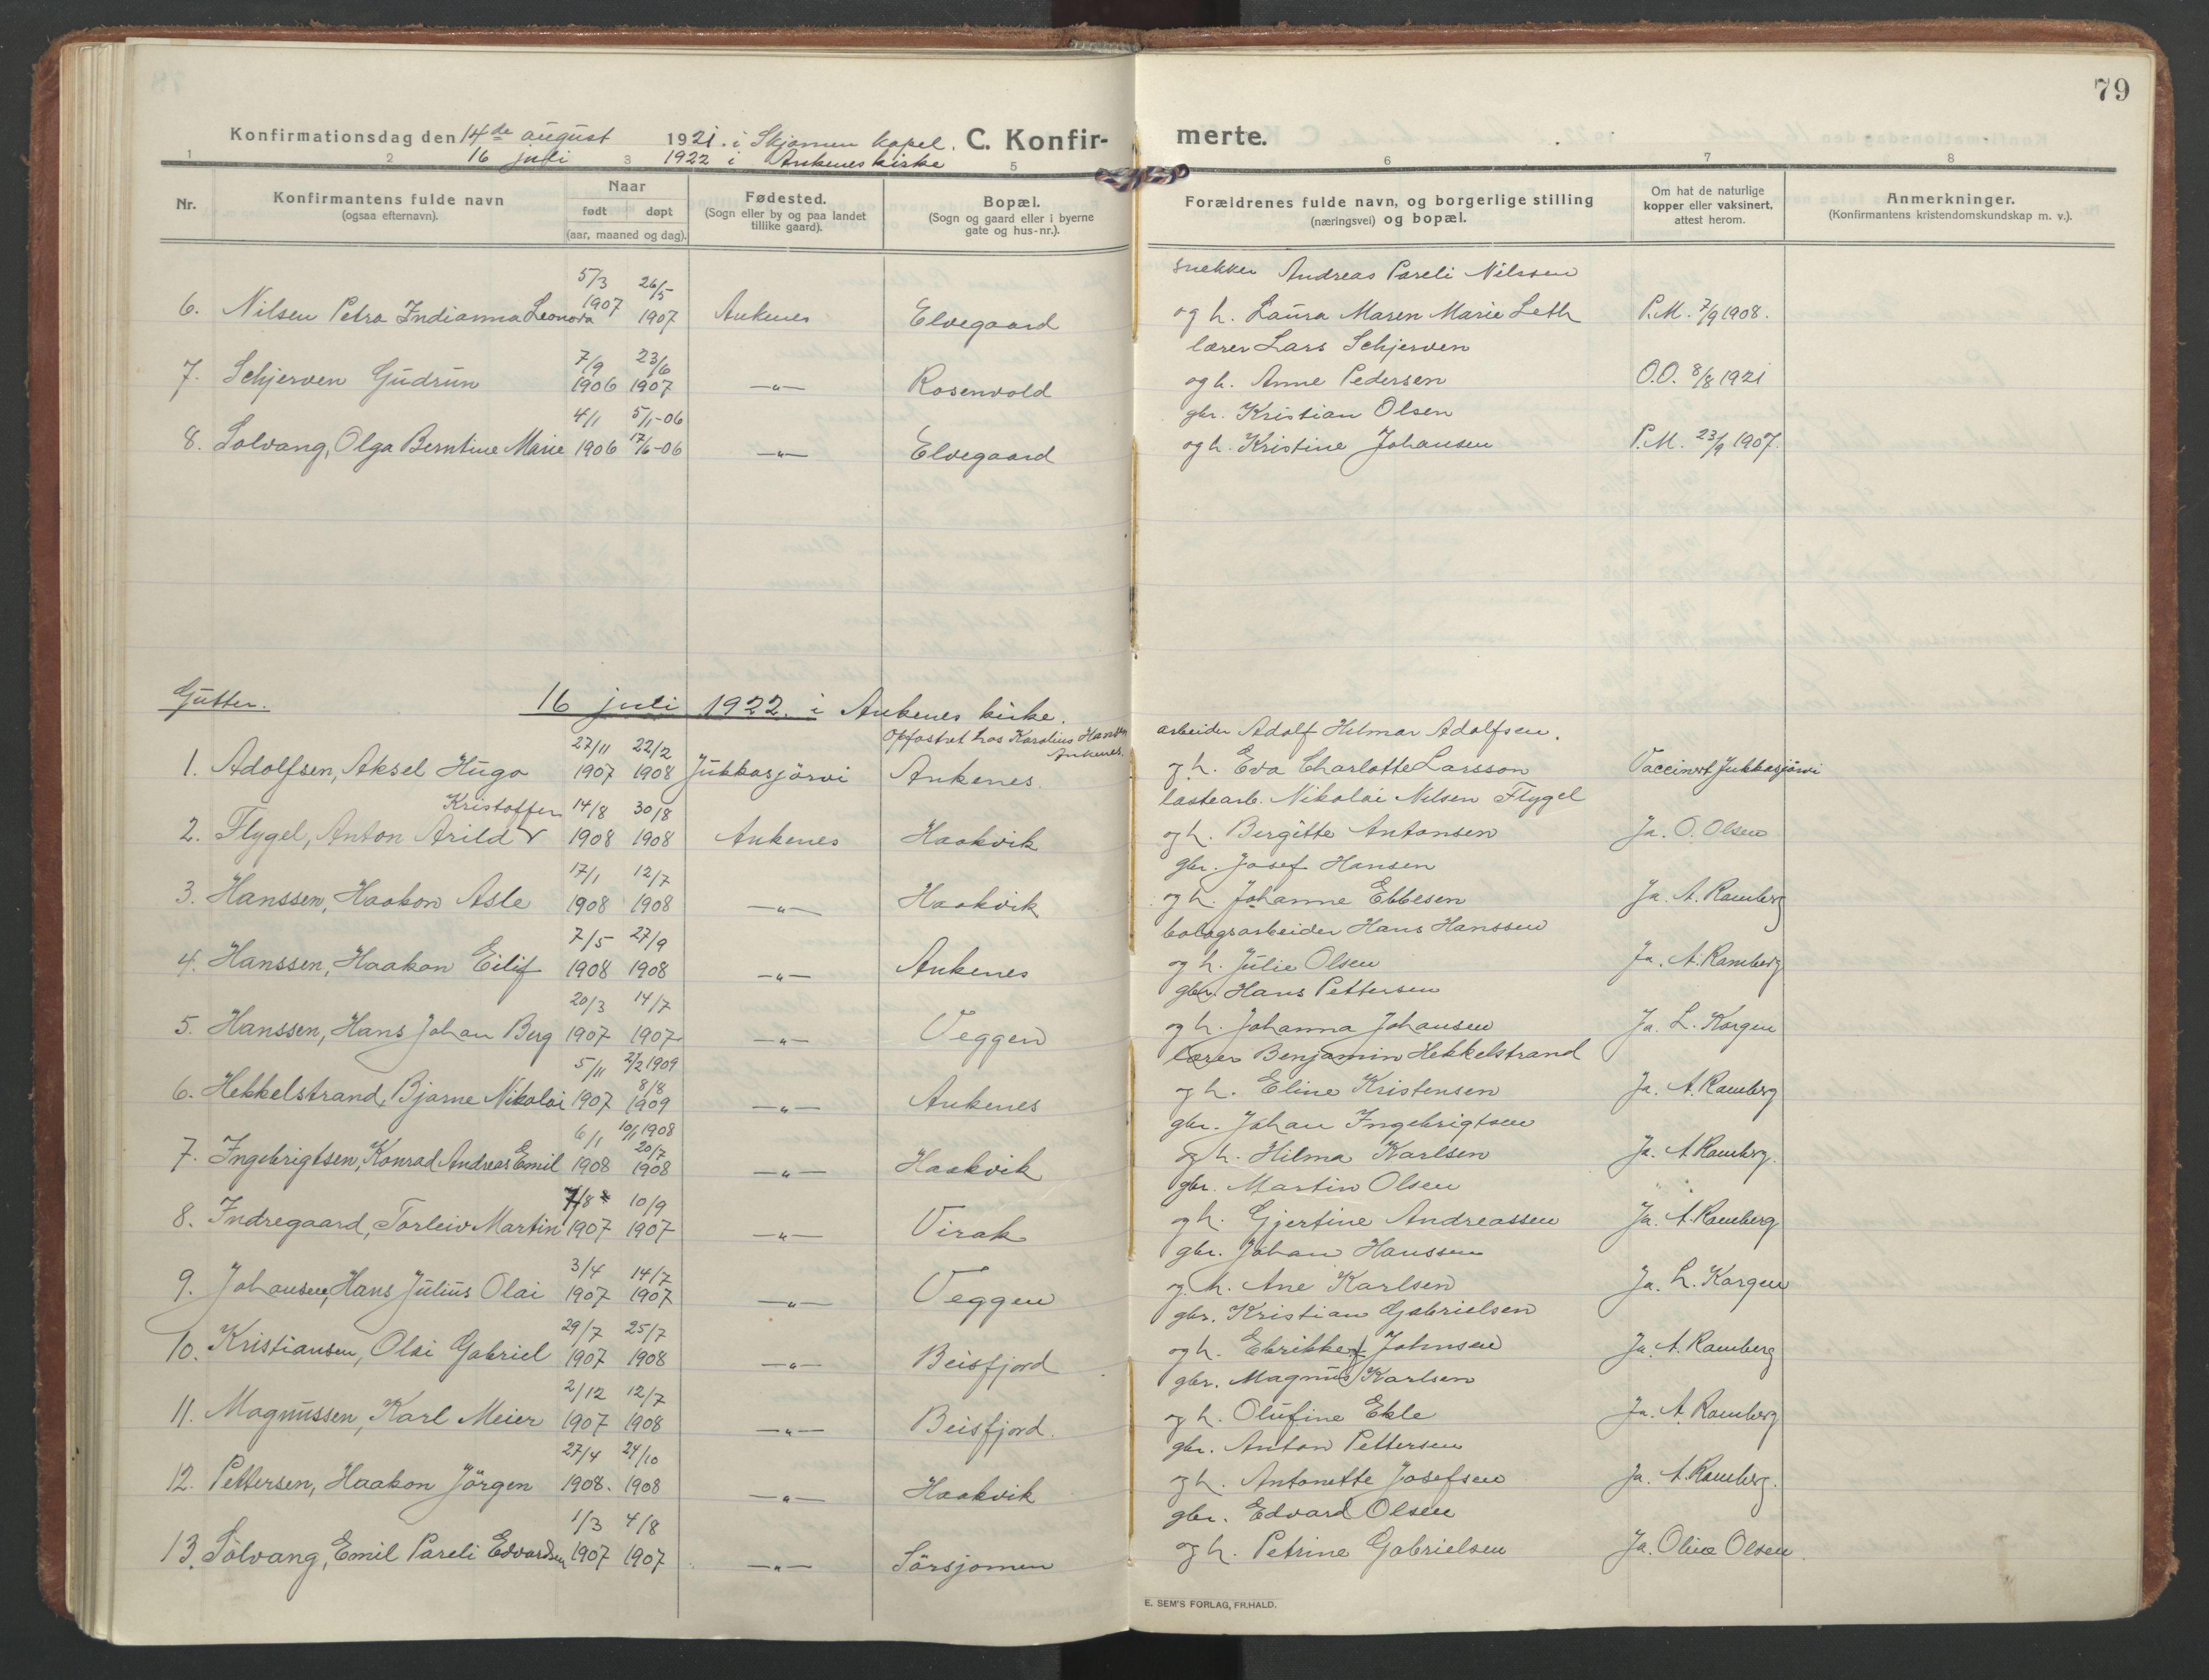 79
Konfirmationsdag den 14de august 1921. i Skjomen kapel. C. Konfir- merte.
16 juli 1922 i Ankenes kirke
1 2 3 5 6 7 8
Nr. Konfirmantens fulde navn (ogsaa efternavn). Naar født døpt (aar, maaned og dag). Fødested. (Sogn eller by og paa landet tillike gaard). Bopæl. (Sogn og gaard eller i byerne gate og hus-nr.). Forældrenes fulde navn, og borgerlige stilling (næringsvei) og bopæl. Om hat de naturlige kopper eller vaksinert, attest herom. Anmerkninger. (Konfirmantens kristendomskundskap m. v.).
5/3 26/5 snekker Andreas Pareli Nilssen
6. Nilsen Petra Indianna Leonora 1907 1907 Ankenes Elvegaard og h. Laura Maren Marie Leth P.M. 7/9 1908.
7/9 23/6 lærer Lars Schjerven
7. Schjerven Gudrun 1906 1907 —"— Rosenvold og h. Anne Pedersen O.O. 8/8 1921
4/1 5/1-06 gbr. Kristian Olsen
8. Solvang, Olga Berntine Marie 1906 17/6-06 —"— Elvegaard og h. Kristine Johansen P.M. 23/9 1907.
Gutter. 16 juli 1922. i Ankenes kirke.
27/11 22/2 Opfostret hos Karolius Hansen Ankenes. arbeider Adolf Hilmar Adolfsen.
1. Adolfsen, Aksel Hugo 1907 1908 Jukkasjärvi Ankenes. og h. Eva Charlotte Larsson Vaccinert Jukkasjärvi
Kristoffer 14/8 30/8 lastearb. Nikolai Nilsen Flygel
2. Flygel, Anton Arild 1908 1908 Ankenes Haakvik og h. Bergitte Antonsen Ja. O. Olsen
17/1 12/7 gbr. Josef Hansen
3. Hanssen, Haakon Asle 1908 1908 —"— Haakvik og h. Johanne Ebbesen Ja. A. Ramberg
7/5 27/9 bolagsarbeider Hans Hanssen
4. Hanssen, Haakon Eilif 1908 1908 —"— Ankenes og h. Julie Olsen Ja. A. Ramberg
20/3 14/7 gbr. Hans Pettersen
5. Hanssen, Hans Johan Berg 1907 1907 —"— Veggen og h. Johanna Johansen Ja. L. Korgen
5/11 2/2 1909 lærer Benjamin Hekkelstrand
6. Hekkelstrand, Bjarne Nikolai 1907 8/8 1909 —"— Ankenes og h. Eline Kristensen Ja. A. Ramberg
6/1 10/1 1908 gbr. Johan Ingebrigtsen
7. Ingebrigtsen, Konrad Andreas Emil 1908 20/7 1908 —"— Haakvik og h. Hilma Karlsen Ja. A. Ramberg.
7/8 10/9 gbr. Martin Olsen
8. Indregaard, Torleiv Martin 1907 1907 —"— Virak og h. Gjertine Andreassen Ja. A. Ramberg
3/4 14/7 gbr. Johan Hanssen
9. Johansen, Hans Julius Olai 1907 1907 —"— Veggen og h. Ane Karlsen Ja. L. Korgen
29/7 25/7 gbr. Kristian Gabrielsen
10. Kristiansen, Olai Gabriel 1907 1908 —"— Beisfjord og h. Johnsen Ja. A. Ramberg
2/12 12/7 gbr. Magnus Karlsen
11. Magnussen, Karl Meier 1907 1908 —"— Beisfjord. og h. Olufine Ekle Ja. A. Ramberg
27/4 24/10 gbr. Anton Pettersen
12. Pettersen, Haakon Jörgen 1908. 1908 —"— Haakvik og h. Antonette Josefsen Ja. A. Ramberg.
1/3 4/8 gbr. Edvard Olsen
13. Solvang, Emil Pareli Edvardsen 1907 1907 —"— Sörsjomen og h. Petrine Gabrielsen Ja. Oline Olsen
E. SEM'S FORLAG, FR.HALD.